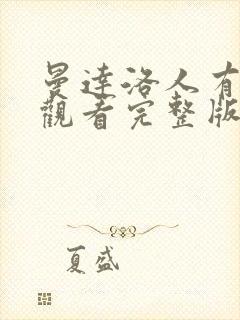 曼達洛人有
觀看完整版
夏盛